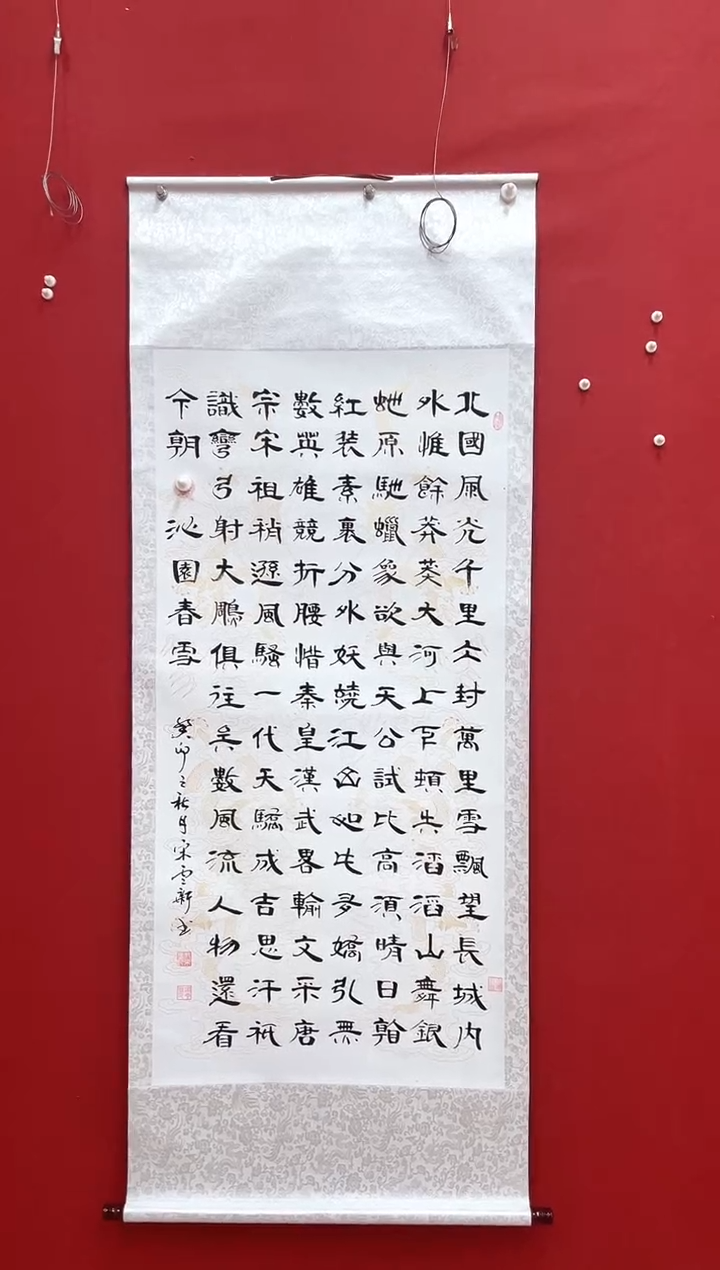 北國風光千里仌封萬里雪飄望長城內
外惟餘莽莽大河上下頓失滔滔山舞銀
蛇原馳蠟象欲與天公試比高須晴日看
紅裝素裹分外妖嬈江山如此多嬌引無
數英雄競折腰惜秦皇漢武畧輸文采唐
宗宋祖稍遜風騷一代天驕成吉思汗祇
識彎弓射大鵰俱往矣數風流人物還看
今朝 沁園春雪
癸卯之秋月宋雲新書